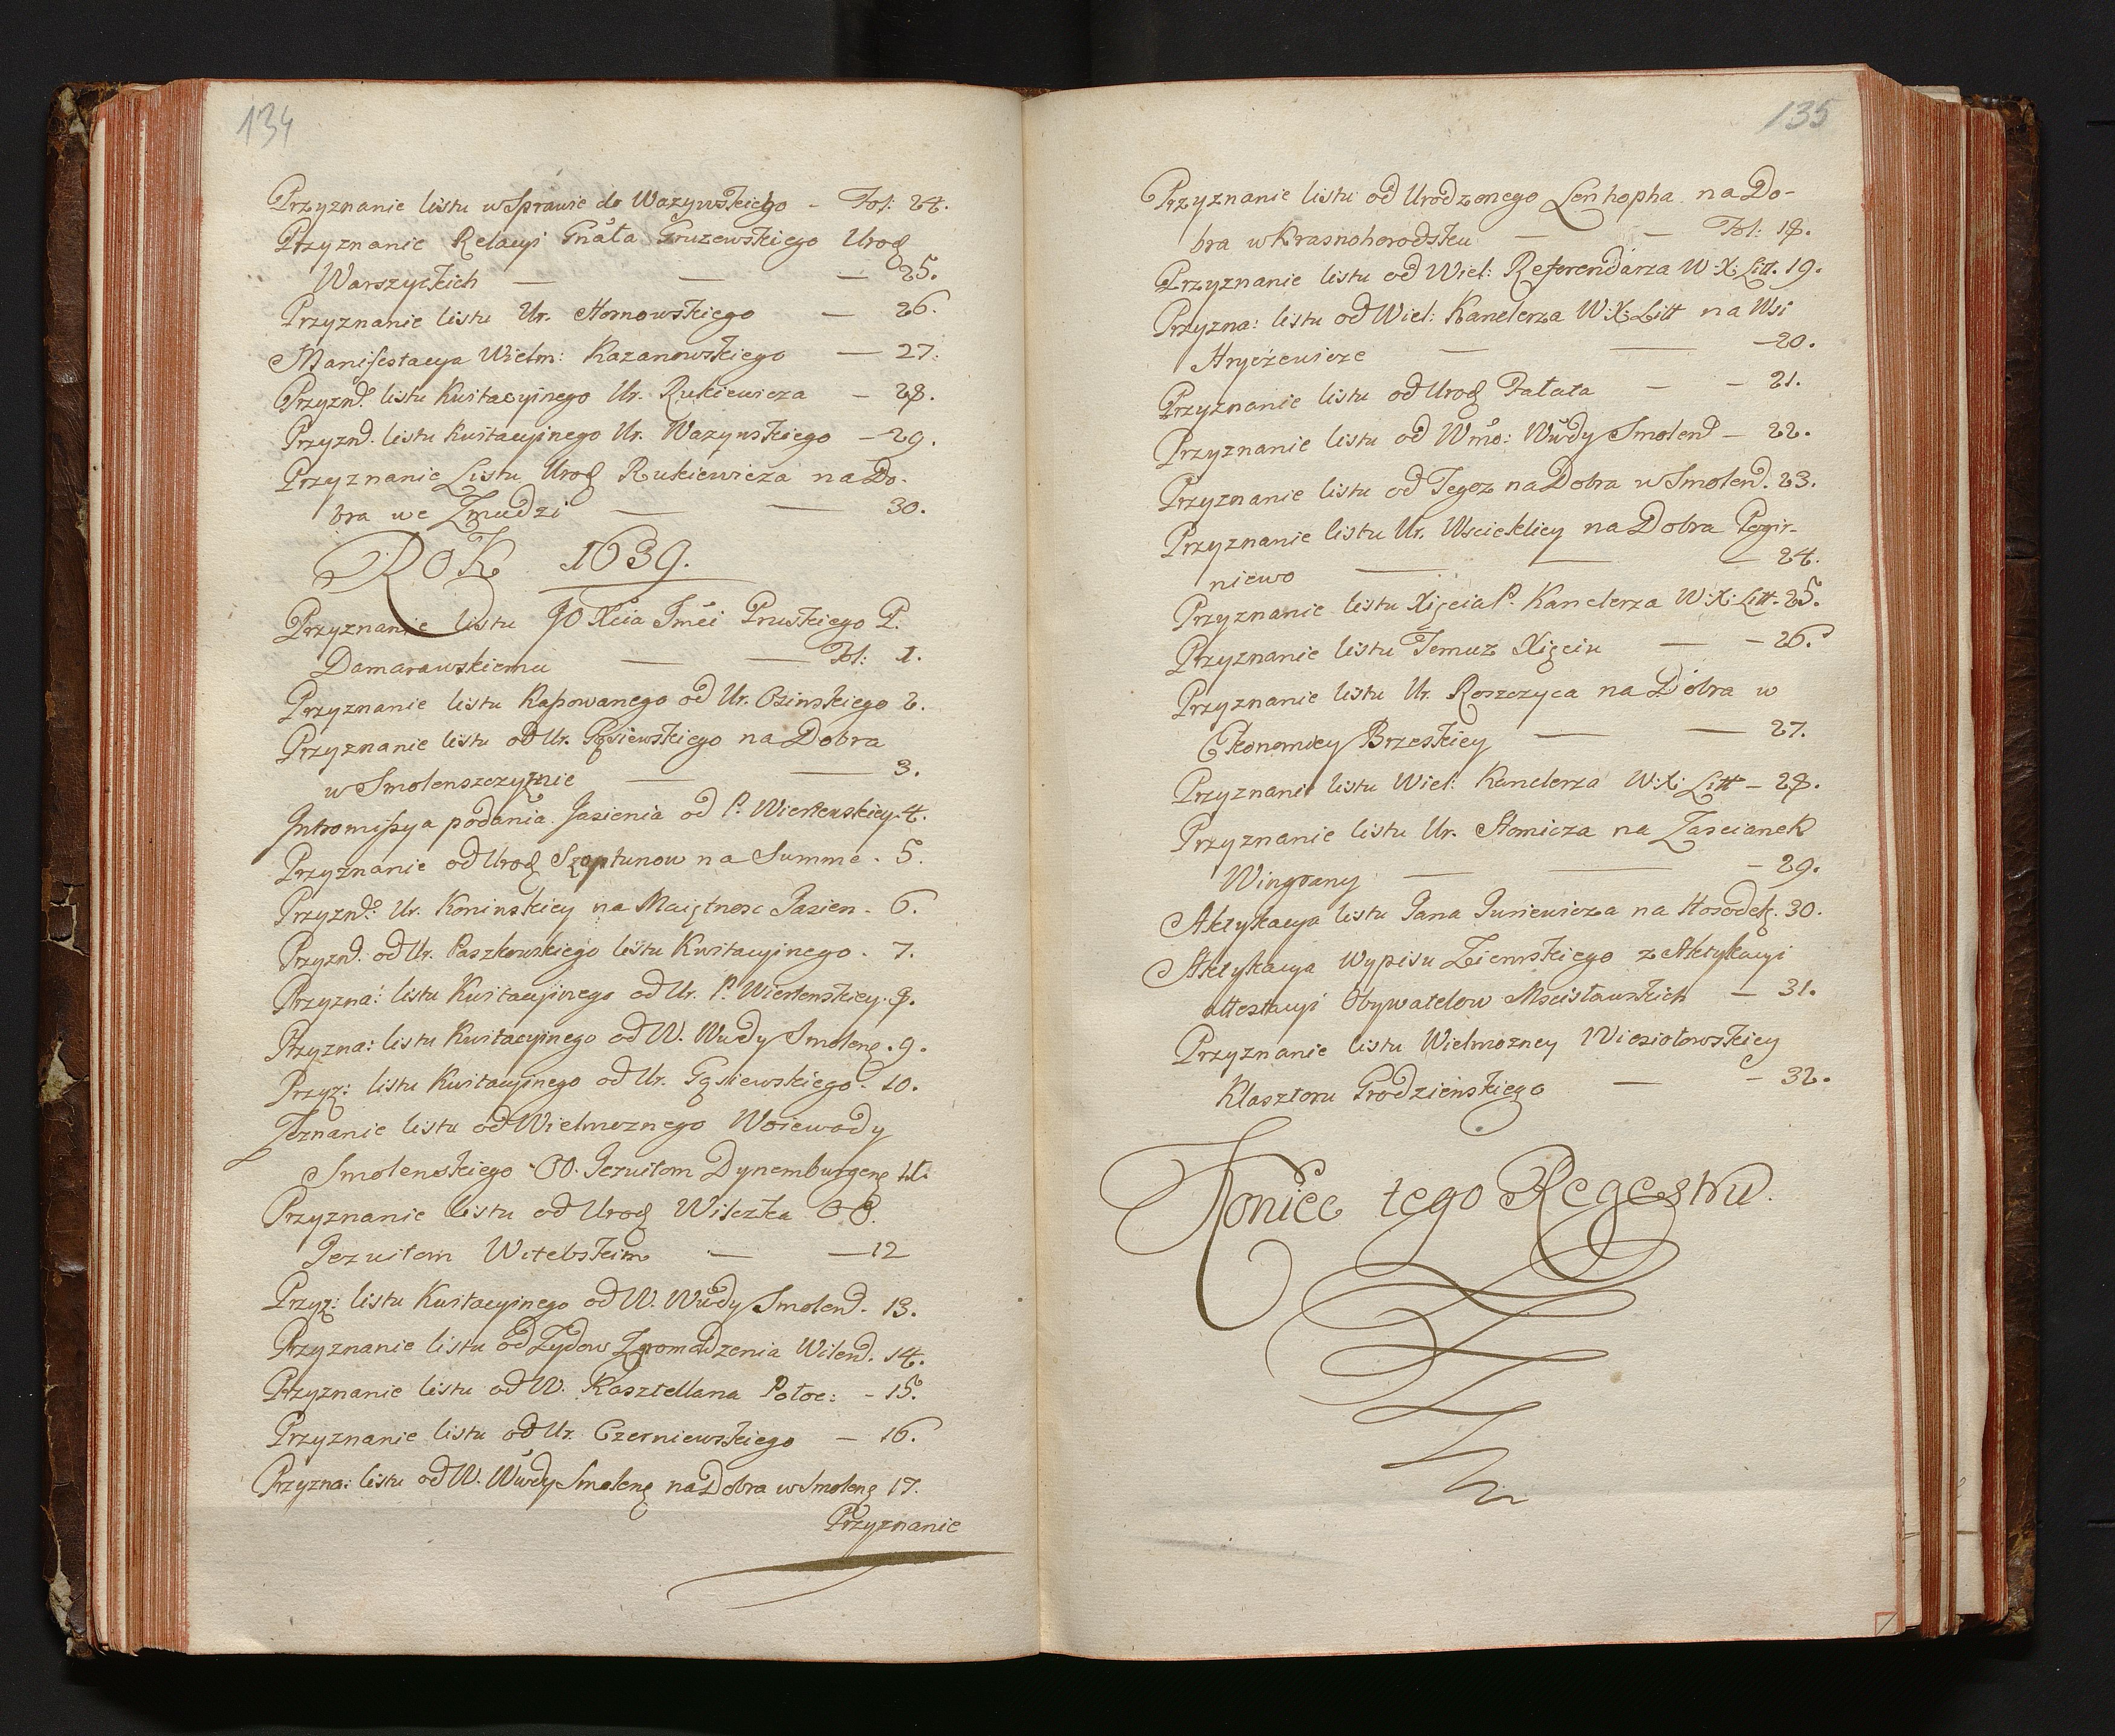 134
Przyznanie listu w Sprawie do Wazynskiego - Fol: 24.
Przyznanie Relacyi Gnāła Gruzewskiego Urod
Warszyckich — — — 25.
Przyznanie listu Ur. Hornowskiego — 26.
Manifestacya Wielm: Kazanowskiego — 27.
Przyznē. listu Kwitacyinego Ur. Rukiewicza — 28.
Przyznē. listu Kwitacyinego Ur. Wazynskiego — 29.
Przyznanie Listu Urod Rukiewicza na Do-
bra we Zmudzi — — 30.
Rok 1639.
Przyznanie listu JO Xcia Jmci Pruskiego P.
Damarawskiemu — — Fol: 1.
Przyznanie listu Kassowanego od Ur. Osinskiego 2.
Przyznanie listu od Ur. Gąsiewskiego na Dobra
w Smolenszczyznie — — 3.
Intromissya podania Jasienia od P. 4.
Przyznanie od Urod Szoptunow na Summe . 5.
Przyznē: Ur. Koninskiey na Maiętnosc Jasien . 6.
Przyznē. od Ur. Paszkowskiego listu Kwitacyinego . 7.
Przyzna: listu Kwitacyinego od Ur. P. 8.
Przyzna: listu Kwitacyinego od W. Wwdy Smolen . 9.
Przyz: listu Kwitacyinego od Ur. Gąsiewskiego . 10.
Zeznanie listu od Wielmoznego Woiewody
Smolenskiego OO. Jezuitom Dynemburgen 11.
Przyznanie listu od Urod Wilczka OO.
Jezuitom Witebskim — — 12
Przyz: listu Kwitacyinego od W. Wwdy Smolen . 13.
Przyznanie listu od Zydow Zgromadzenia Wilen . 14.
Przyznanie listu od W. Kasztellana Połoc: - 15.
Przyznanie listu od Ur. Czerniewskiego — 16.
Przyzna: listu od W. Wwdy Smolen na Dobra w Smolen 17.
Przyznanie
135
Przyznanie listu od Urodzonego Lenhopha na Do-
bra w Krasnohorodsku — — Fol: 18.
Przyznanie listu od Wiel: Referendarza W: X: Litt. 19.
Przyzna: listu od Wiel: Kanclerza W: X: Litt na Wsi
Hryczewicze — — — 20.
Przyznanie listu od Urod Fałata — - 21.
Przyznanie listu od Wmo: Wwdy Smolen — 22.
Przyznanie listu od Tegoz na Dobra w Smolen . 23.
Przyznanie listu Ur. Wscieklicy na Dobra Pogir-
niewo — — — 24.
Przyznanie listu Xięcia P. Kanclerza W: X: Litt. 25.
Przyznanie listu Temuz Xięciu — — 26.
Przyznanie listu Ur. Roszczyca na Dobra w
Ekonomiey Brzeskiey — — 27.
Przyznanie listu Wiel: Kanclerza W: X: Litt — 28.
Przyznanie listu Ur. Słomicza na Zascianek
Wingrany — — — 29.
Aktykacya listu Pana Juriewicza na Horodek . 30.
Aktykacya Wypisu Ziemskiego z Aktykacyi
Attestacyi Obywatelow Mscisławskich — 31.
Przyznanie listu Wielmozney Wiesiołowskiey
Klasztoru Grodzienskiego — — 32.
Koniec tego Regestru.